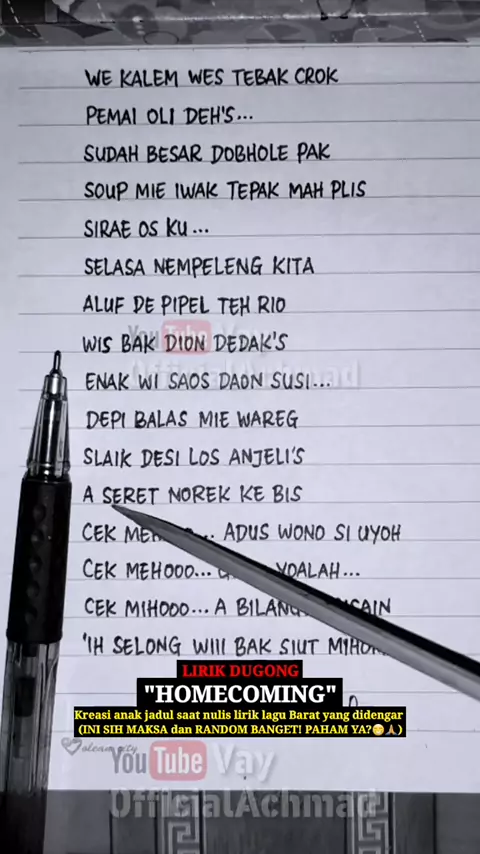 WE KALEM WES TEBAK CROK
PEMAI OLI DEH'S...
SUDAH BESAR DOBHOLE PAK
SOUP MIE IWAK TEPAK MAH PLIS
SIRAE OS KU...
SELASA NEMPELENG KITA
ALUF DE PIPEL TEH RIO
WIS BAK DION DEDAK'S
YouTube Vay
OffisialAchmad
ENAK WI SAOS DAON SUSI...
DEPI BALAS MIE WAREG
SLAIK DESI LOS ANJELI'S
A SERET NOREK KE BIS
CEK ... ADUS WONO SI UYOH
CEK MEHOOO... YOALAH...
CEK MIHOOO... A
'IH SELONG WIII BAK SIUT
LIRIK DUGONG
"HOMECOMING"
Kreasi anak jadul saat nulis lirik lagu Barat yang didengar
(INI SIH MAKSA dan RANDOM BANGET! PAHAM YA?😁🙏)
YouTube Vay
OffisialAchmad